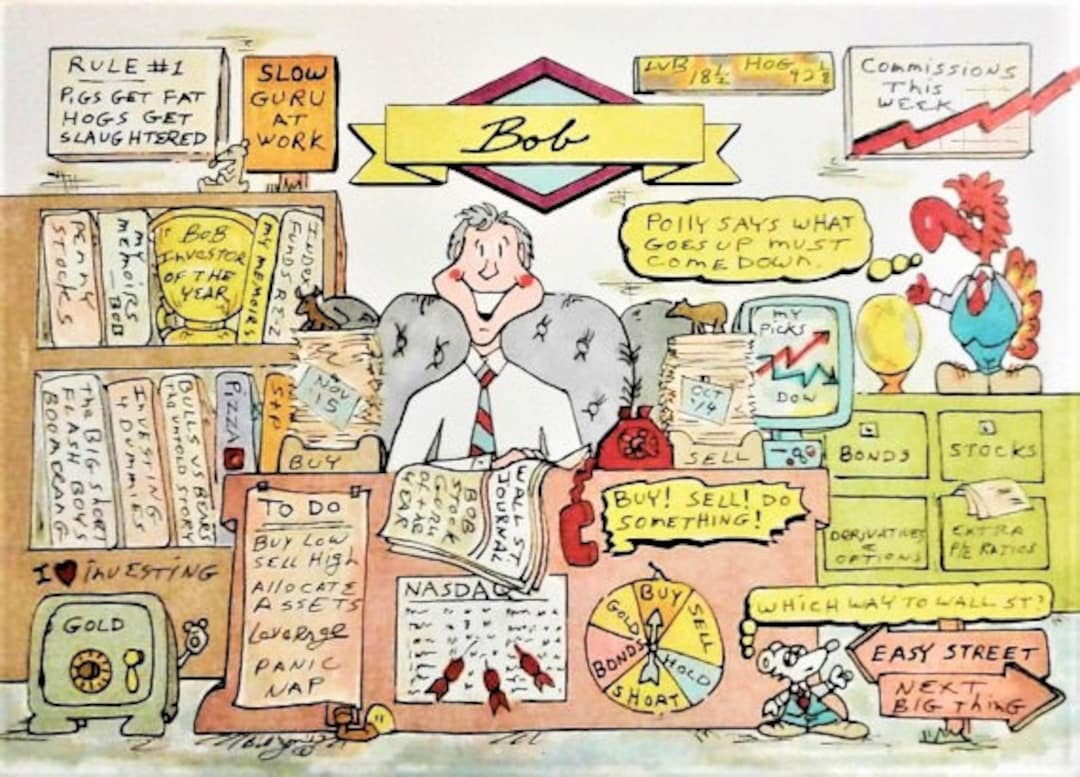 RULE #1
PIGS GET FAT
HOGS GET
SLAUGHTERED
SLOW
GURU
AT
WORK
Bob
LUB 18½ HOG 92⅛
COMMISSIONS
THIS
WEEK
POLLY SAYS WHAT
GOES UP MUST
COME DOWN.
PENNY
STOCKS
MY
MEMOIRS
BOB
BOB
INVESTOR
OF THE
YEAR
MY MEMOIRS
FUNDS R EZ
MY
PICKS
DOW
NOV
'15
OCT
'14
BUY
SELL
BOOMERANG
FLASH BOYS
THE BIG SHORT
INVESTING
4 DUMMIES
BULLS VS BEARS
THE UNTOLD STORY
PIZZA
S&P
BONDS
STOCKS
DERIVATIVES
&
OPTIONS
EXTRA
P/E RATIOS
I ♥ INVESTING
GOLD
TO DO
BUY LOW
SELL HIGH
ALLOCATE
ASSETS
Leverage
PANIC
NAP
WALL ST
JOURNAL
BOB
STOCK
GURU
OF THE
YEAR
BUY! SELL! DO
SOMETHING!
NASDAQ
BUY
SELL
HOLD
SHORT
BONDS
GOLD
WHICH WAY TO WALL ST?
EASY STREET
NEXT
BIG THING